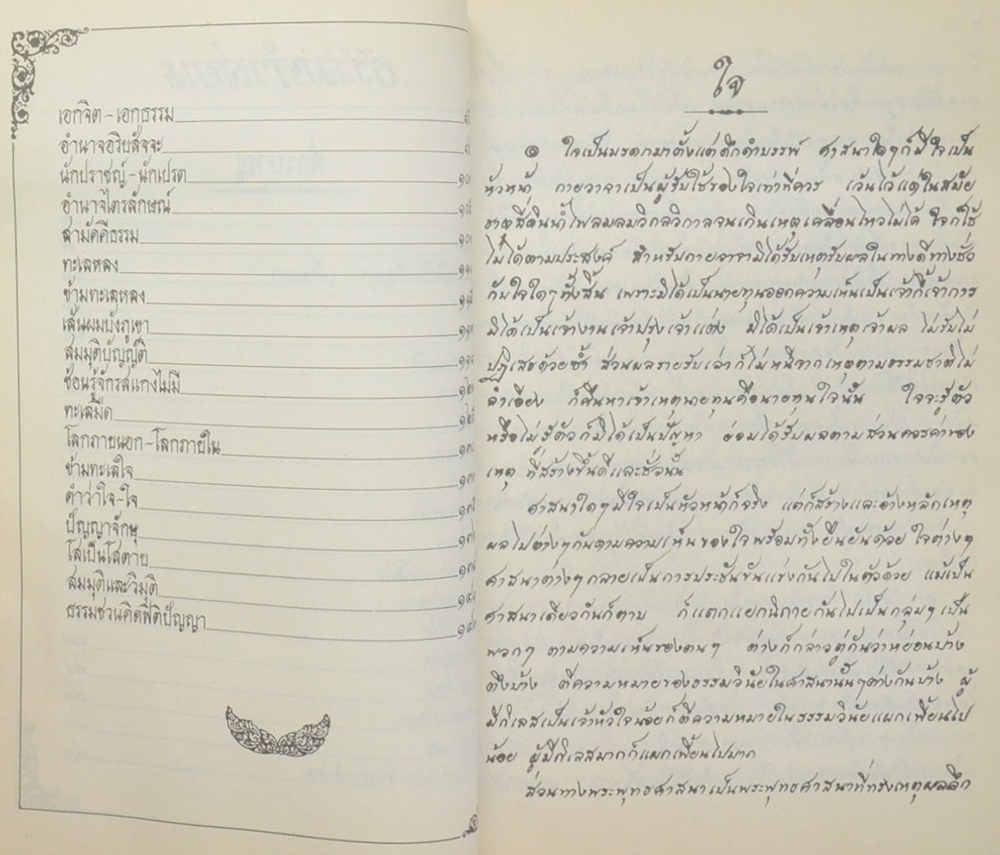 เอกจิต-เอกธรรม
อำนาจอริยสัจจะ
นักปราชญ์-นักเปรต
อำนาจไตรลักษณ์
สามัคคีธรรม
ทะเลหลง
ข้ามทะเลหลง
เส้นผมบังภูเขา
สมมุติบัญญัติ
ซ้อนรู้จักรสแกงไม่มี
ทะเลมืด
โลกภายนอก-โลกภายใน
ข้ามทะเลใจ
คำว่าใจ-ใจ
ปัญญาจักษุ
โสเป็นโสตาย
สมมุติและวิมุติ
ธรรมชวนคิดฟิติปัญญา
ใจ
๑ ใจเป็นมรดกมาตั้งแต่ดึกดำบรรพ์ ศาสนาใดๆก็มีใจเป็น
หัวหน้า กายวาจาเป็นผู้รับใช้ของใจเท่าที่ควร เว้นไว้แต่ในสมัย
ธาตุสี่ดินน้ำไฟลมลมวิกลวิกาลจนเกินเหตุเคลื่อนไหวไม่ได้ ใจก็ใช้
ไม่ได้ตามประสงค์ สำหรับกายวาจามิได้รับเหตุรับผลในทางดีทางชั่ว
กับใจใดๆทั้งสิ้น เพราะมิได้เป็นนายทุนออกความเห็นเป็นเจ้ากี้เจ้าการ
มิได้เป็นเจ้างานเจ้าปรุงเจ้าแต่ง มิได้เป็นเจ้าเหตุเจ้าผล ไม่รับไม่
ปฏิเสธด้วยซ้ำ ส่วนผลรายรับเล่าก็ไม่หนีจากเหตุตามธรรมชาติไม่
ลำเอียง ก็คืนหาเจ้าเหตุนายทุนคือนายทุนใจนั้น ใจจะรู้ตัว
หรือไม่รู้ตัวก็มิได้เป็นปัญหา ย่อมได้รับผลตามส่วนควรค่าของ
เหตุ ที่สร้างขึ้นดีและชั่วนั้น
ศาสนาใดๆมีใจเป็นหัวหน้าก็จริง แต่ก็สร้างและอ้างหลักเหตุ
ผลไปต่างๆกันตามความเห็นของใจพร้อมทั้งยืนยันด้วย ใจต่างๆ
ศาสนาต่างๆกลายเป็นการประชันขันแข่งกันไปในตัวด้วย แม้เป็น
ศาสนาเดียวกันก็ตาม ก็แตกแยกนิกายกันไปเป็นกลุ่มๆเป็น
พวกๆ ตามความเห็นของตนๆ ต่างก็กล่าวตู่กันว่าหย่อนบ้าง
ตึงบ้าง ตีความหมายของธรรมวินัยในศาสนานั้นๆต่างกันบ้าง ผู้
มีกิเลสเป็นเจ้าหัวใจน้อยก็ตีความหมายในธรรมวินัยแผกเพี้ยนไป
น้อย ผู้มีกิเลสมากก็แผกเพี้ยนไปมาก
ส่วนทางพระพุทธศาสนาเป็นพระพุทธศาสนาที่ทรงเหตุผลลึก